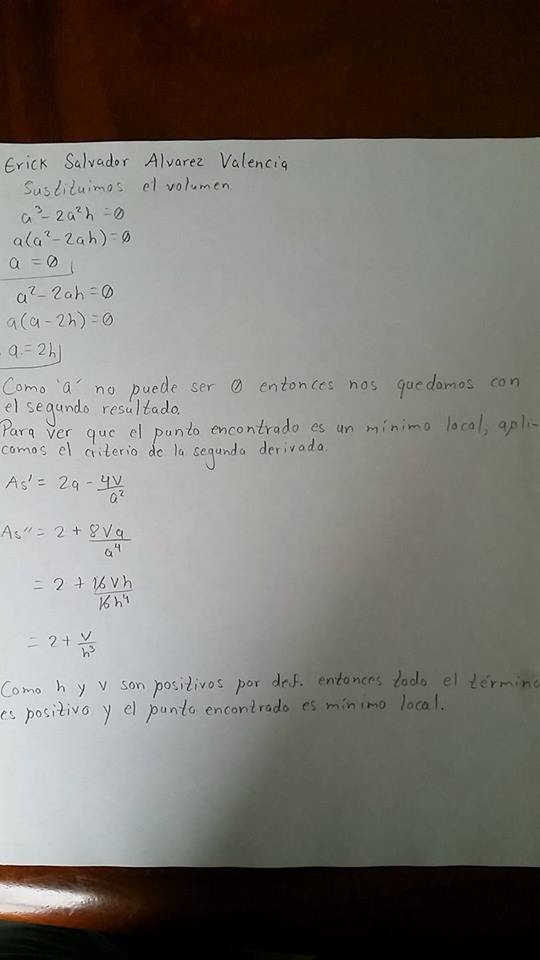 Erick Salvador Alvarez Valencia
Sustituimos el volumen.
a³ - 2a²h = 0
a(a² - 2ah) = 0
a = 0
a² - 2ah = 0
a(a - 2h) = 0
a = 2h
Como 'a' no puede ser 0 entonces nos quedamos con
el segundo resultado.
Para ver que el punto encontrado es un mínimo local, apli-
camos el criterio de la segunda derivada.
As' = 2a - 4V/a²
As'' = 2 + 8Va/a⁴
= 2 + 16Vh/16h⁴
= 2 + V/h³
Como h y v son positivos por def. entonces todo el término
es positivo y el punto encontrado es mínimo local.